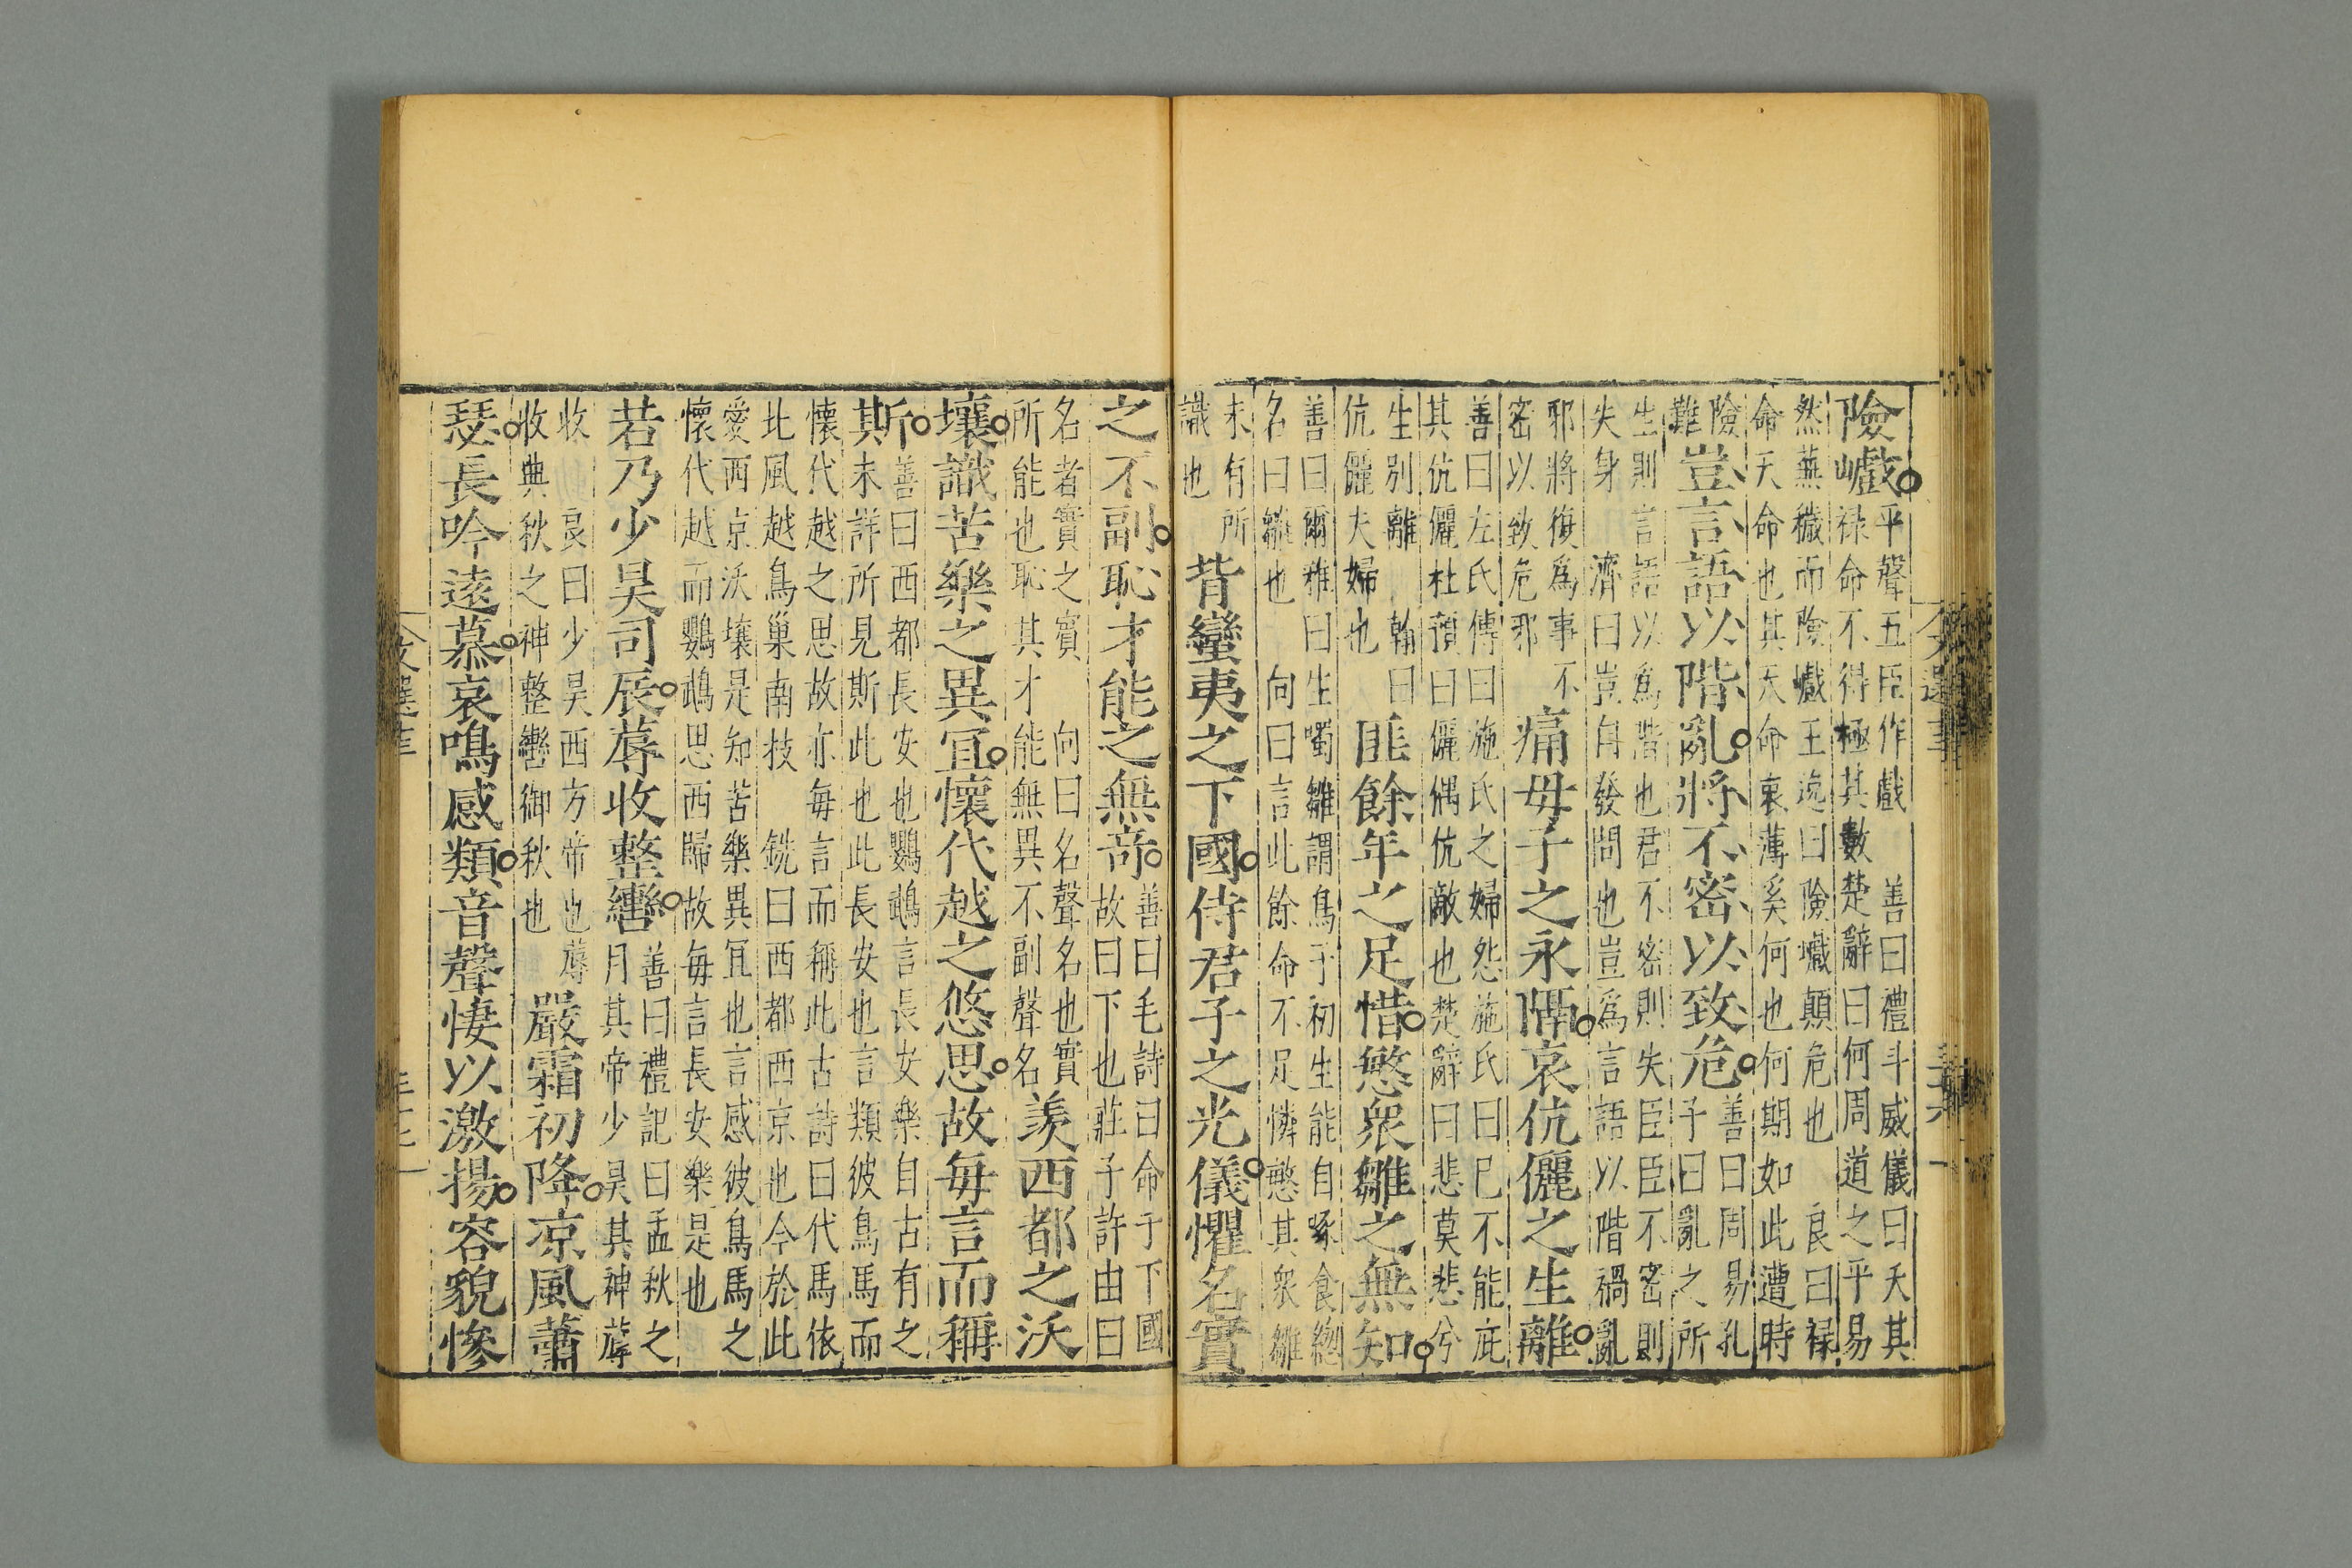 險巇
平聲五臣作戲 善曰禮斗威儀曰天其
祿命不得極其數楚辭曰何周道之平易
然蕪穢而險巇王逸曰險巇顛危也 良曰祿
命天命也其天命衰薄奚何也何期如此遭時
險
難
豈言語以階亂將不密以致危
善曰周易孔
子曰亂之所
生則言語以爲階也君不密則失臣臣不密則
失身 濟曰豈自發問也豈爲言語以階禍亂
邪將復爲事不
密以致危邪
痛母子之永隔哀伉儷之生離
善曰左氏傳曰施氏之婦怨施氏曰已不能庇
其伉儷杜預曰儷偶伉敵也楚辭曰悲莫悲兮
生別離 翰曰
伉儷夫婦也
匪餘年之足惜慜衆雛之無知
善曰爾雅曰生噣雛謂鳥子初生能自啄食緫
名曰雛也 向曰言此餘命不足憐慜其衆雛
未有所
識也
背蠻夷之下國侍君子之光儀懼名實
之不副恥才能之無竒
善曰毛詩曰命于下國
故曰下也莊子許由曰
名者實之賓 向曰名聲名也實
所能也恥其才能無異不副聲名
羨西都之沃
壤識苦樂之異冝懷代越之悠思故每言而稱
斯
善曰西都長安也鸚鵡言長安樂自古有之
其未詳所見斯此也此長安也言類彼鳥馬而
懷代越之思故亦每言而稱此古詩曰代馬依
北風越鳥巢南枝 銑曰西都西京也今於此
愛西京沃壤是知苦樂異冝也言感彼鳥馬之
懷代越而鸚鵡思西歸故每言長安樂是也
若乃少昊司辰蓐收整轡
善曰禮記曰孟秋之
月其帝少昊其神蓐
收 良曰少昊西方帝也蓐
收典秋之神整轡御秋也
嚴霜初降凉風蕭
瑟長吟遠慕哀鳴感類音聲悽以激揚容貌慘